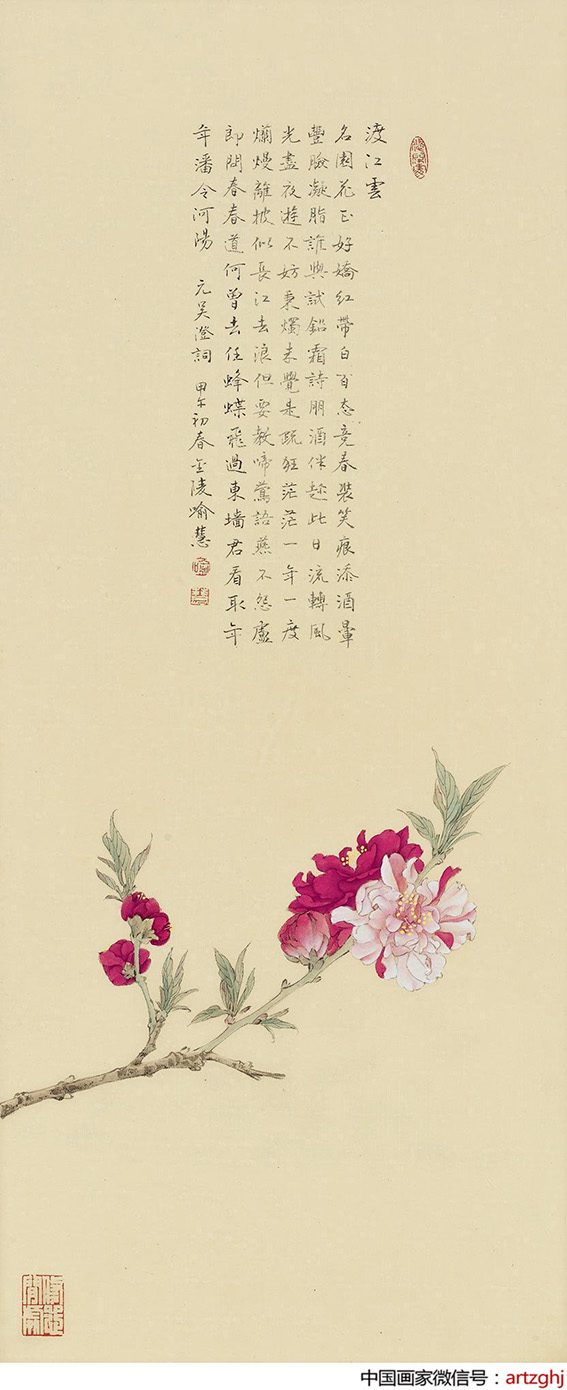 渡江雲
名園花正好嬌紅帶白百态竞春裝笑痕添酒暈
豐臉凝脂誰與試鉛霜詩朋酒伴趂此日流轉風
光盡夜遊不妨秉燭未覺是疏狂茫茫一年一度
爛熳離披似長江去浪但要教啼鶯語燕不怨盧
郎問春春道何曾去任蜂蝶飛過東墻君看取年
年潘令河陽
元吴澄詞
甲午初春金陵喻慧
中国画家微信号：artzghj